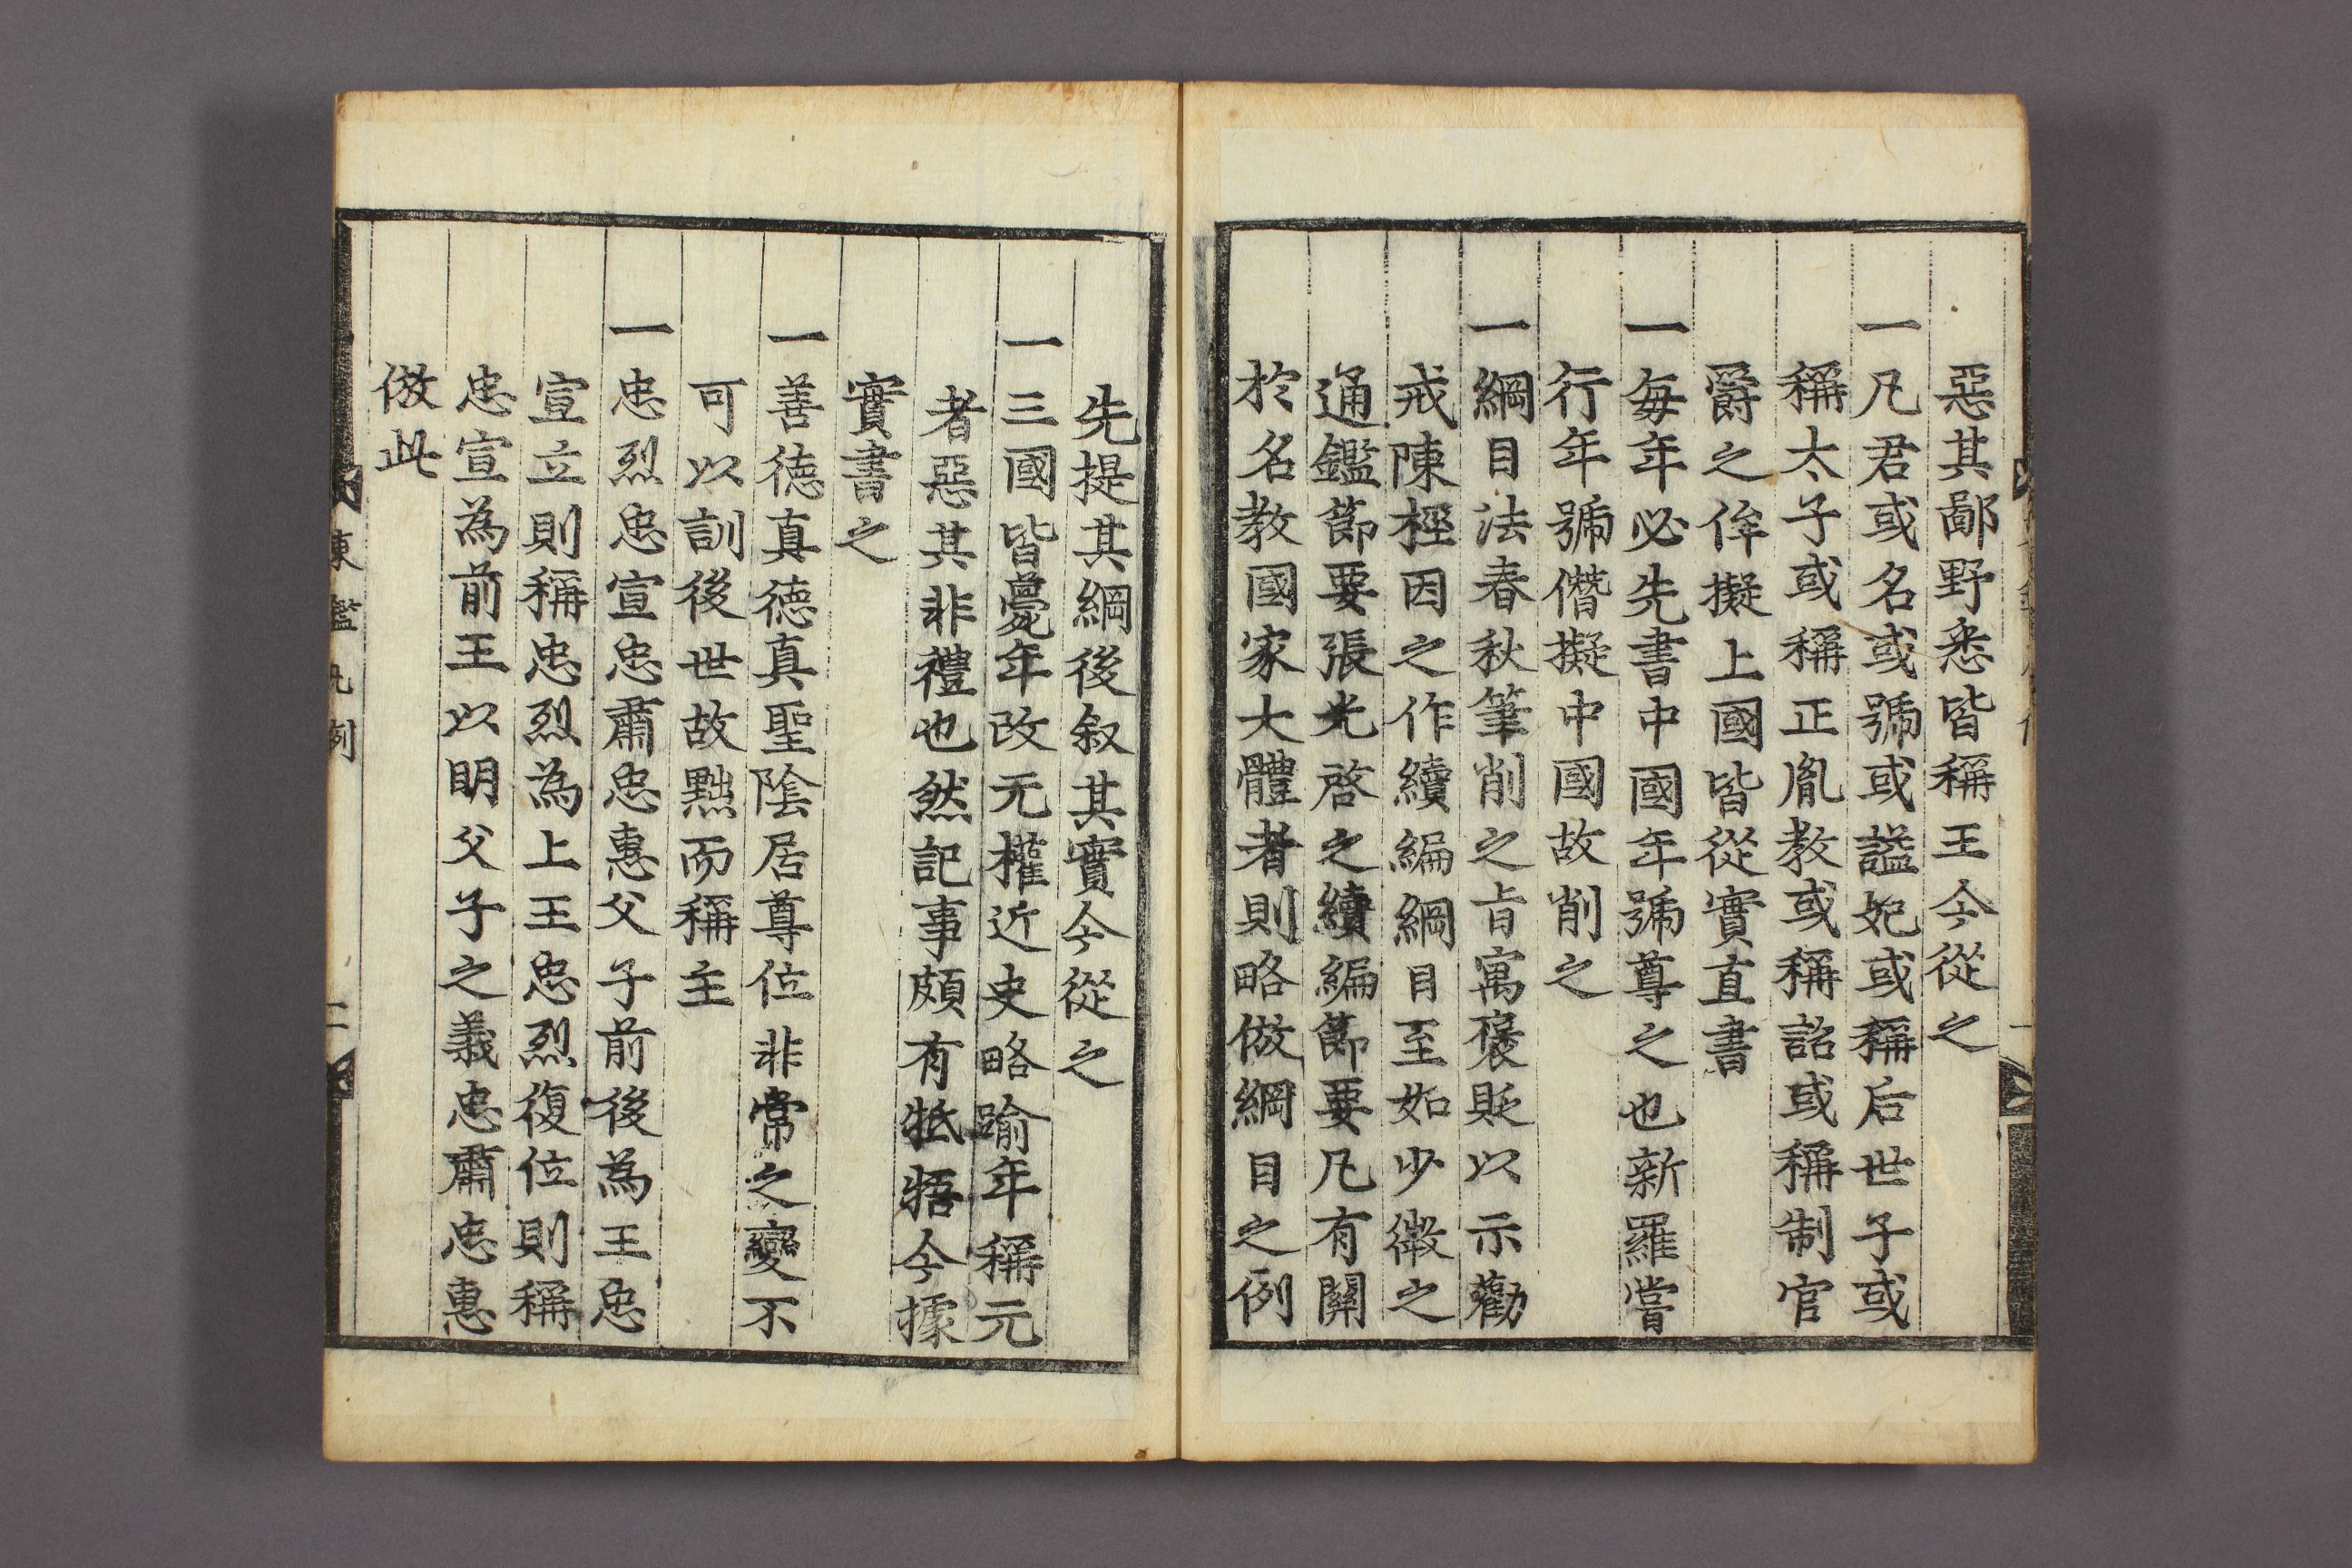 惡其鄙野悉皆稱王今從之
一凡君或名或號或謚妃或稱后世子或
稱太子或稱正胤教或稱詔或稱制官
爵之侔擬上國皆從實直書
一每年必先書中國年號尊之也新羅嘗
行年號僭擬中國故削之
一綱目法春秋筆削之旨寓褒貶以示勸
戒陳桱因之作續編綱目至如少微之
通鑑節要張光啓之續編節要凡有關
於名教國家大體者則略倣綱目之例
先提其綱後叙其實今從之
一三國皆薨年改元權近史略踰年稱元
者惡其非禮也然記事頗有牴牾今據
實書之
一善德真德真聖陰居尊位非常之變不
可以訓後世故黜而稱主
一忠烈忠宣忠肅忠惠父子前後為王忠
宣立則稱忠烈為上王忠烈復位則稱
忠宣為前王以明父子之義忠肅忠惠
倣此
東鑑凡例 二